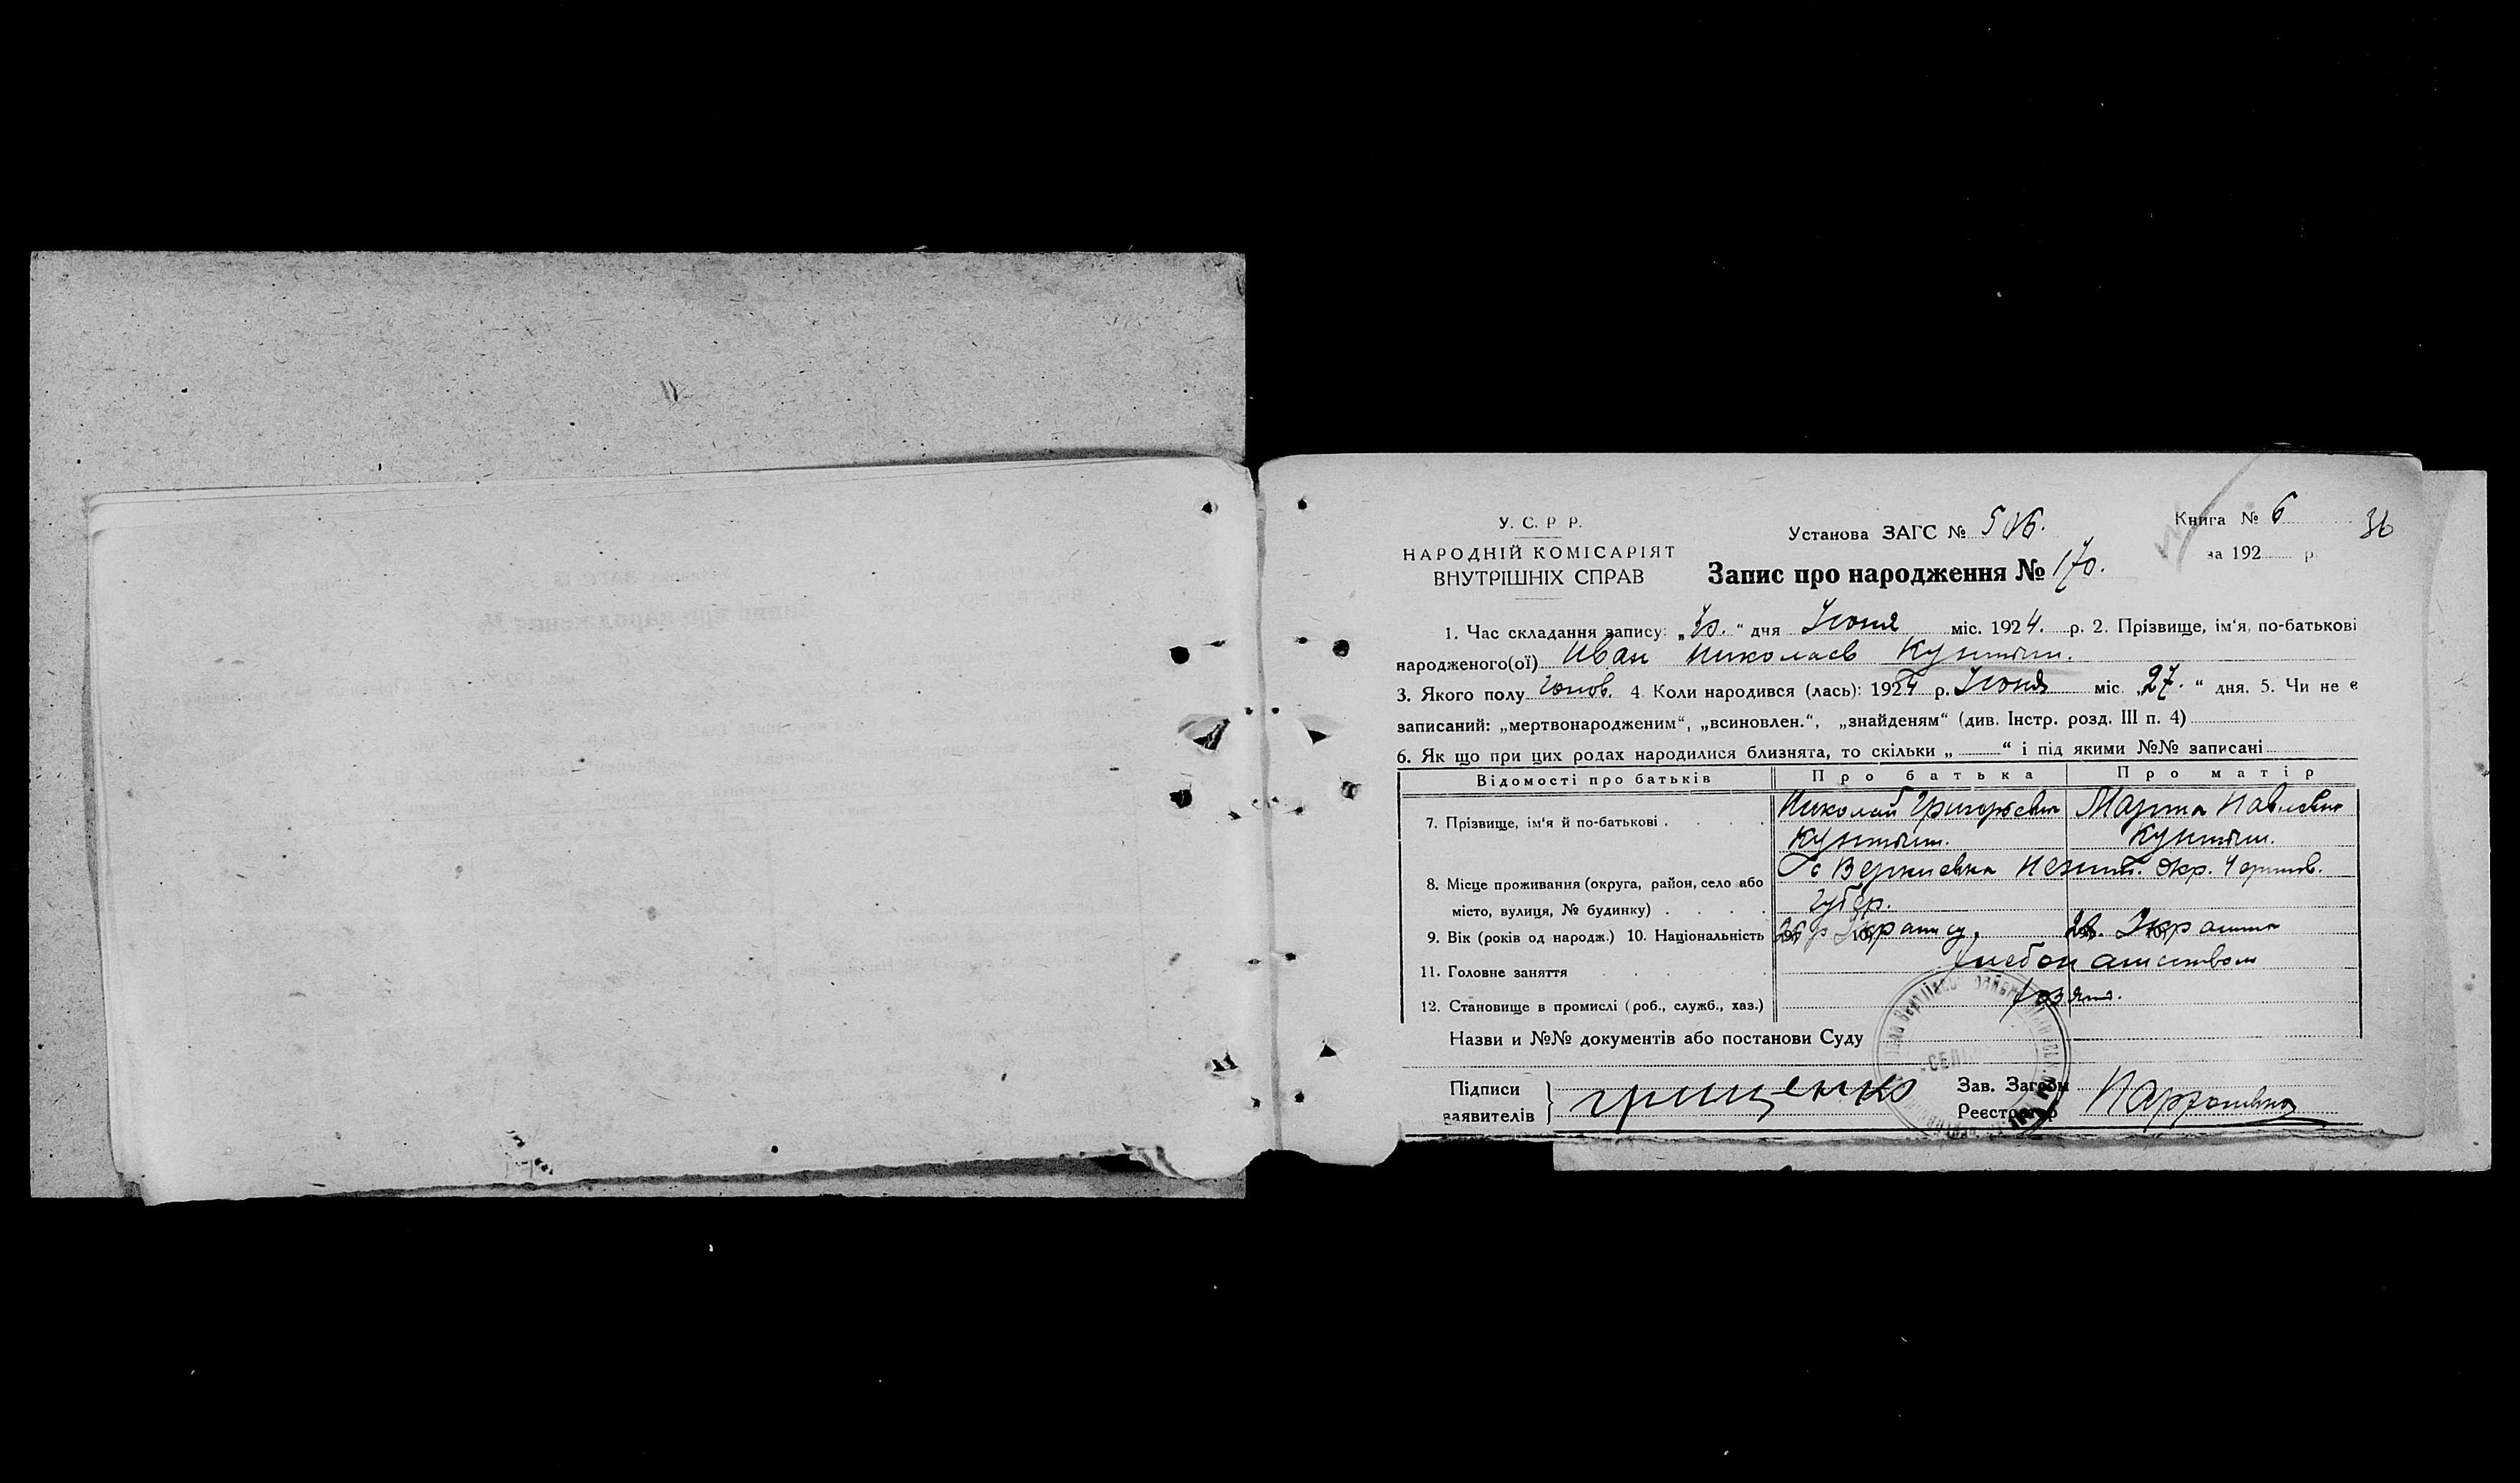 У. С. Р. Р.
НАРОДНІЙ КОМІСАРІЯТ
ВНУТРІШНІХ СПРАВ
Установа ЗАГС № 506.
Запис про народження № 170.
Книга № 6 36
за 192 р.
1. Час складання запису: „30.“ дня Июня міс. 1924. р. 2. Прізвище, ім‘я, по-батькові
народженого(ої) Иван Николаев
3. Якого полу 4. Коли народився (лась): 1924 р. Июня міс. „27.“ дня. 5. Чи не є
записаний: „мертвонародженим“, „всиновлен.“, „знайденям“ (див. Інстр. розд. III п. 4)
6. Як що при цих родах народилися близнята, то скільки „ “ і під якими №№ записані
Відомості про батьків Про батька Про матір
7. Прізвище, ім‘я й по-батькові . . . . Николай Григорьевич Марта Павловна
8. Місце проживання (округа, район, село або с Веркиевка Нежин. Окр. Чернигов.
місто, вулиця, № будинку) . . . . Губер.
9. Вік (років од народж.) 10. Національність
11. Головне заняття . . . . хлебопашеством
12. Становище в промислі (роб., служб., хаз.) хозяин.
Назви и №№ документів або постанови Суду
Підписи
заявителів } Грищенко
Зав. Загсом
Реєстратор